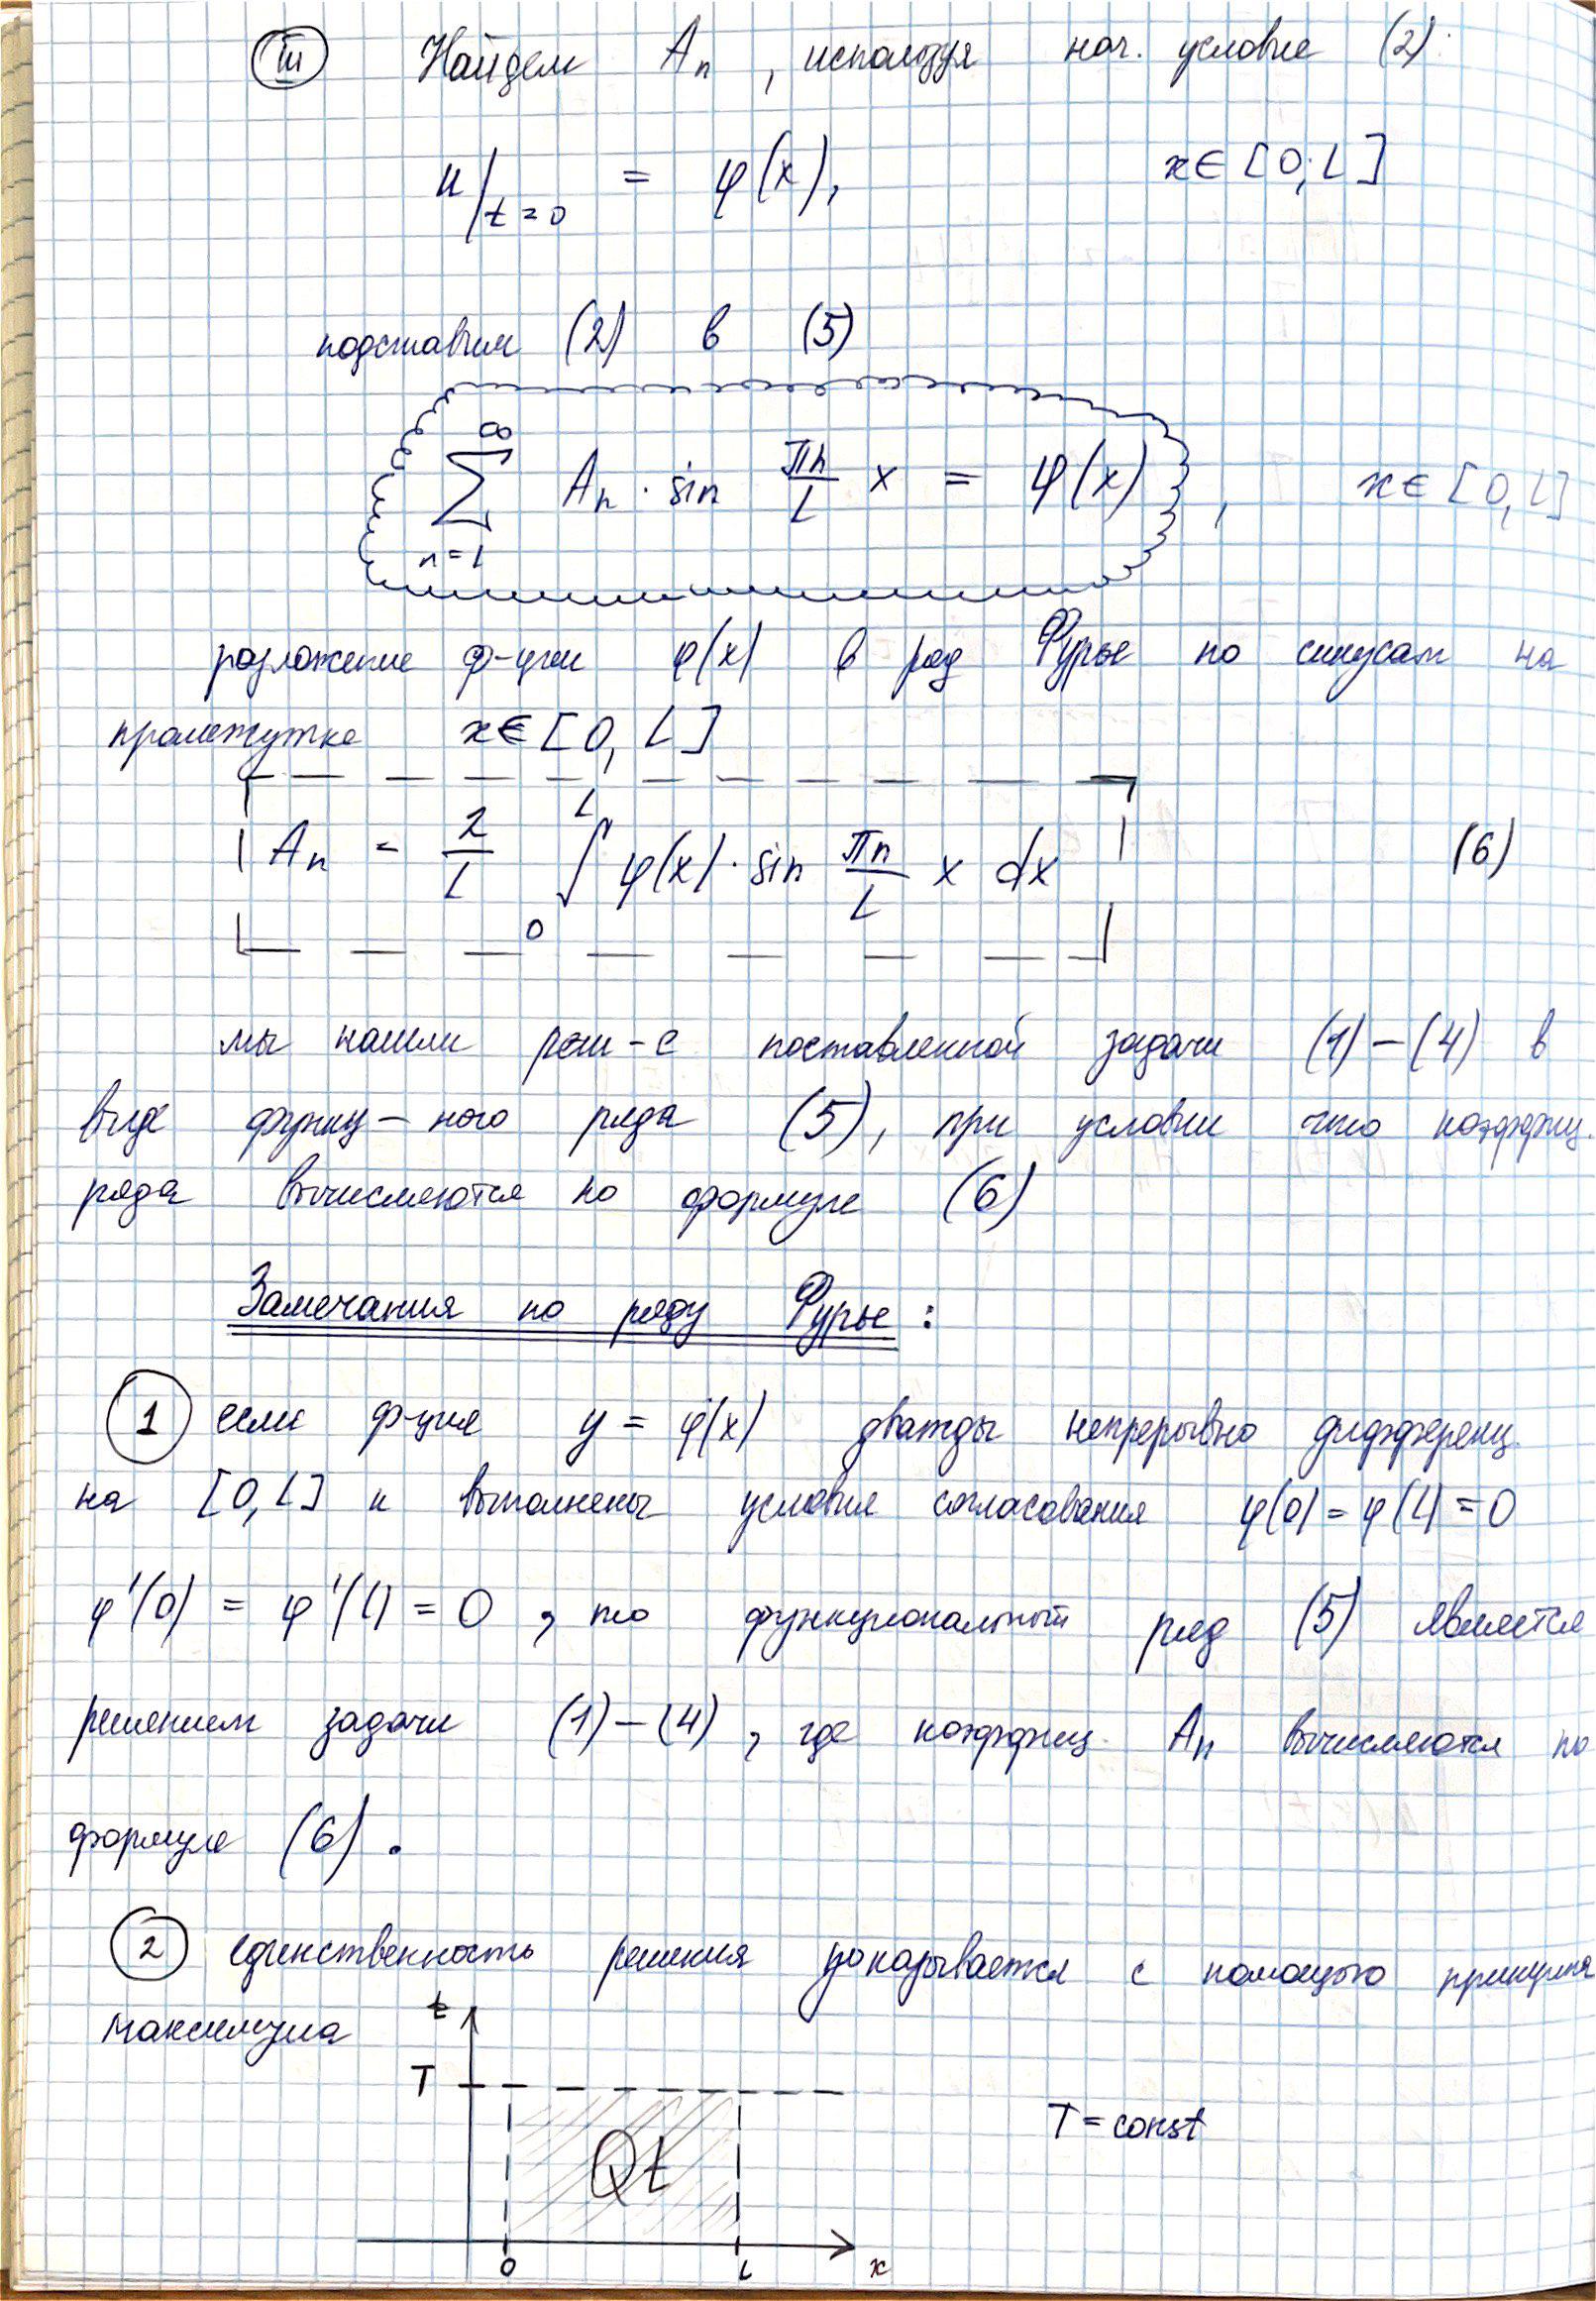 III Найдем Aₙ, используя нач. условие (2):
u|ₜ₌₀ = φ(x), x∈[0; L]
подставим (2) в (5)
∑ₙ₌₁^∞ Aₙ · sin πn/L x = φ(x), x∈[0, L]
разложение ф-ции φ(x) в ряд Фурье по синусам на
промежутке x∈[0, L]
Aₙ = 2/L ∫₀^L φ(x) · sin πn/L x dx (6)
мы нашли реш-е поставленной задачи (1)–(4) в
виде функц–ного ряда (5), при условии что коэффиц.
ряда вычисляются по формуле (6)
Замечания по ряду Фурье:
1 если ф-ция y = φ(x) дважды непрерывно дифференц.
на [0, L] и выполнены условия согласования φ(0) = φ(L) = 0
φ'(0) = φ'(L) = 0, то функциональный ряд (5) является
решением задачи (1)–(4), где коэффиц. Aₙ вычисляются по
формуле (6).
2 единственность решения доказывается с помощью принципа
максимума
t
T
Qt
T = const
0 L x